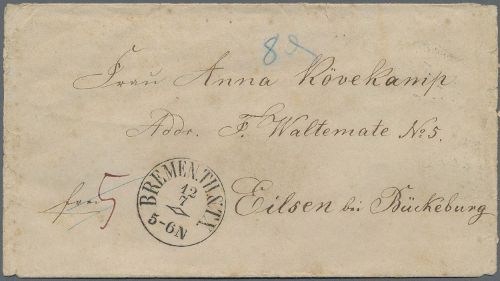 8
Frau Anna Kövekamp
Addr. F. Waltemate No 5.
frei 5
BREMEN.TH.&TX
12
7
5-6N
Eilsen bei Bückeburg